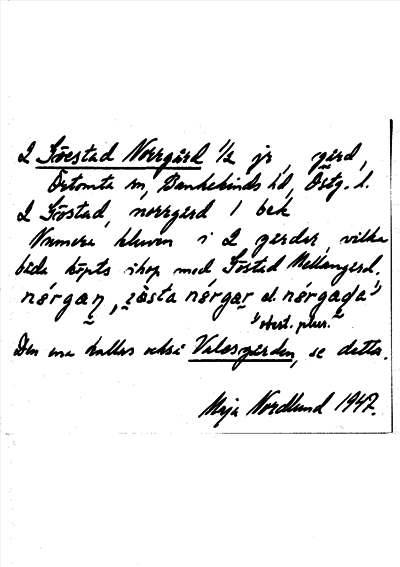 2 Göestad Norrgård 1/2 jr, gård,
Örtomta sn, Bankekinds hd, Östg. l.
2 Göstad, norrgård 1 bek
Numera kluven i 2 gårdar, vilka
båda köpts ihop med Göstad Mellangård.
nórgaṇ, nórgar el. nórgaḍa 1)
1) obest. plur.
Den ena kallas också Valosgården, se detta.
Maja Nordlund 1947.